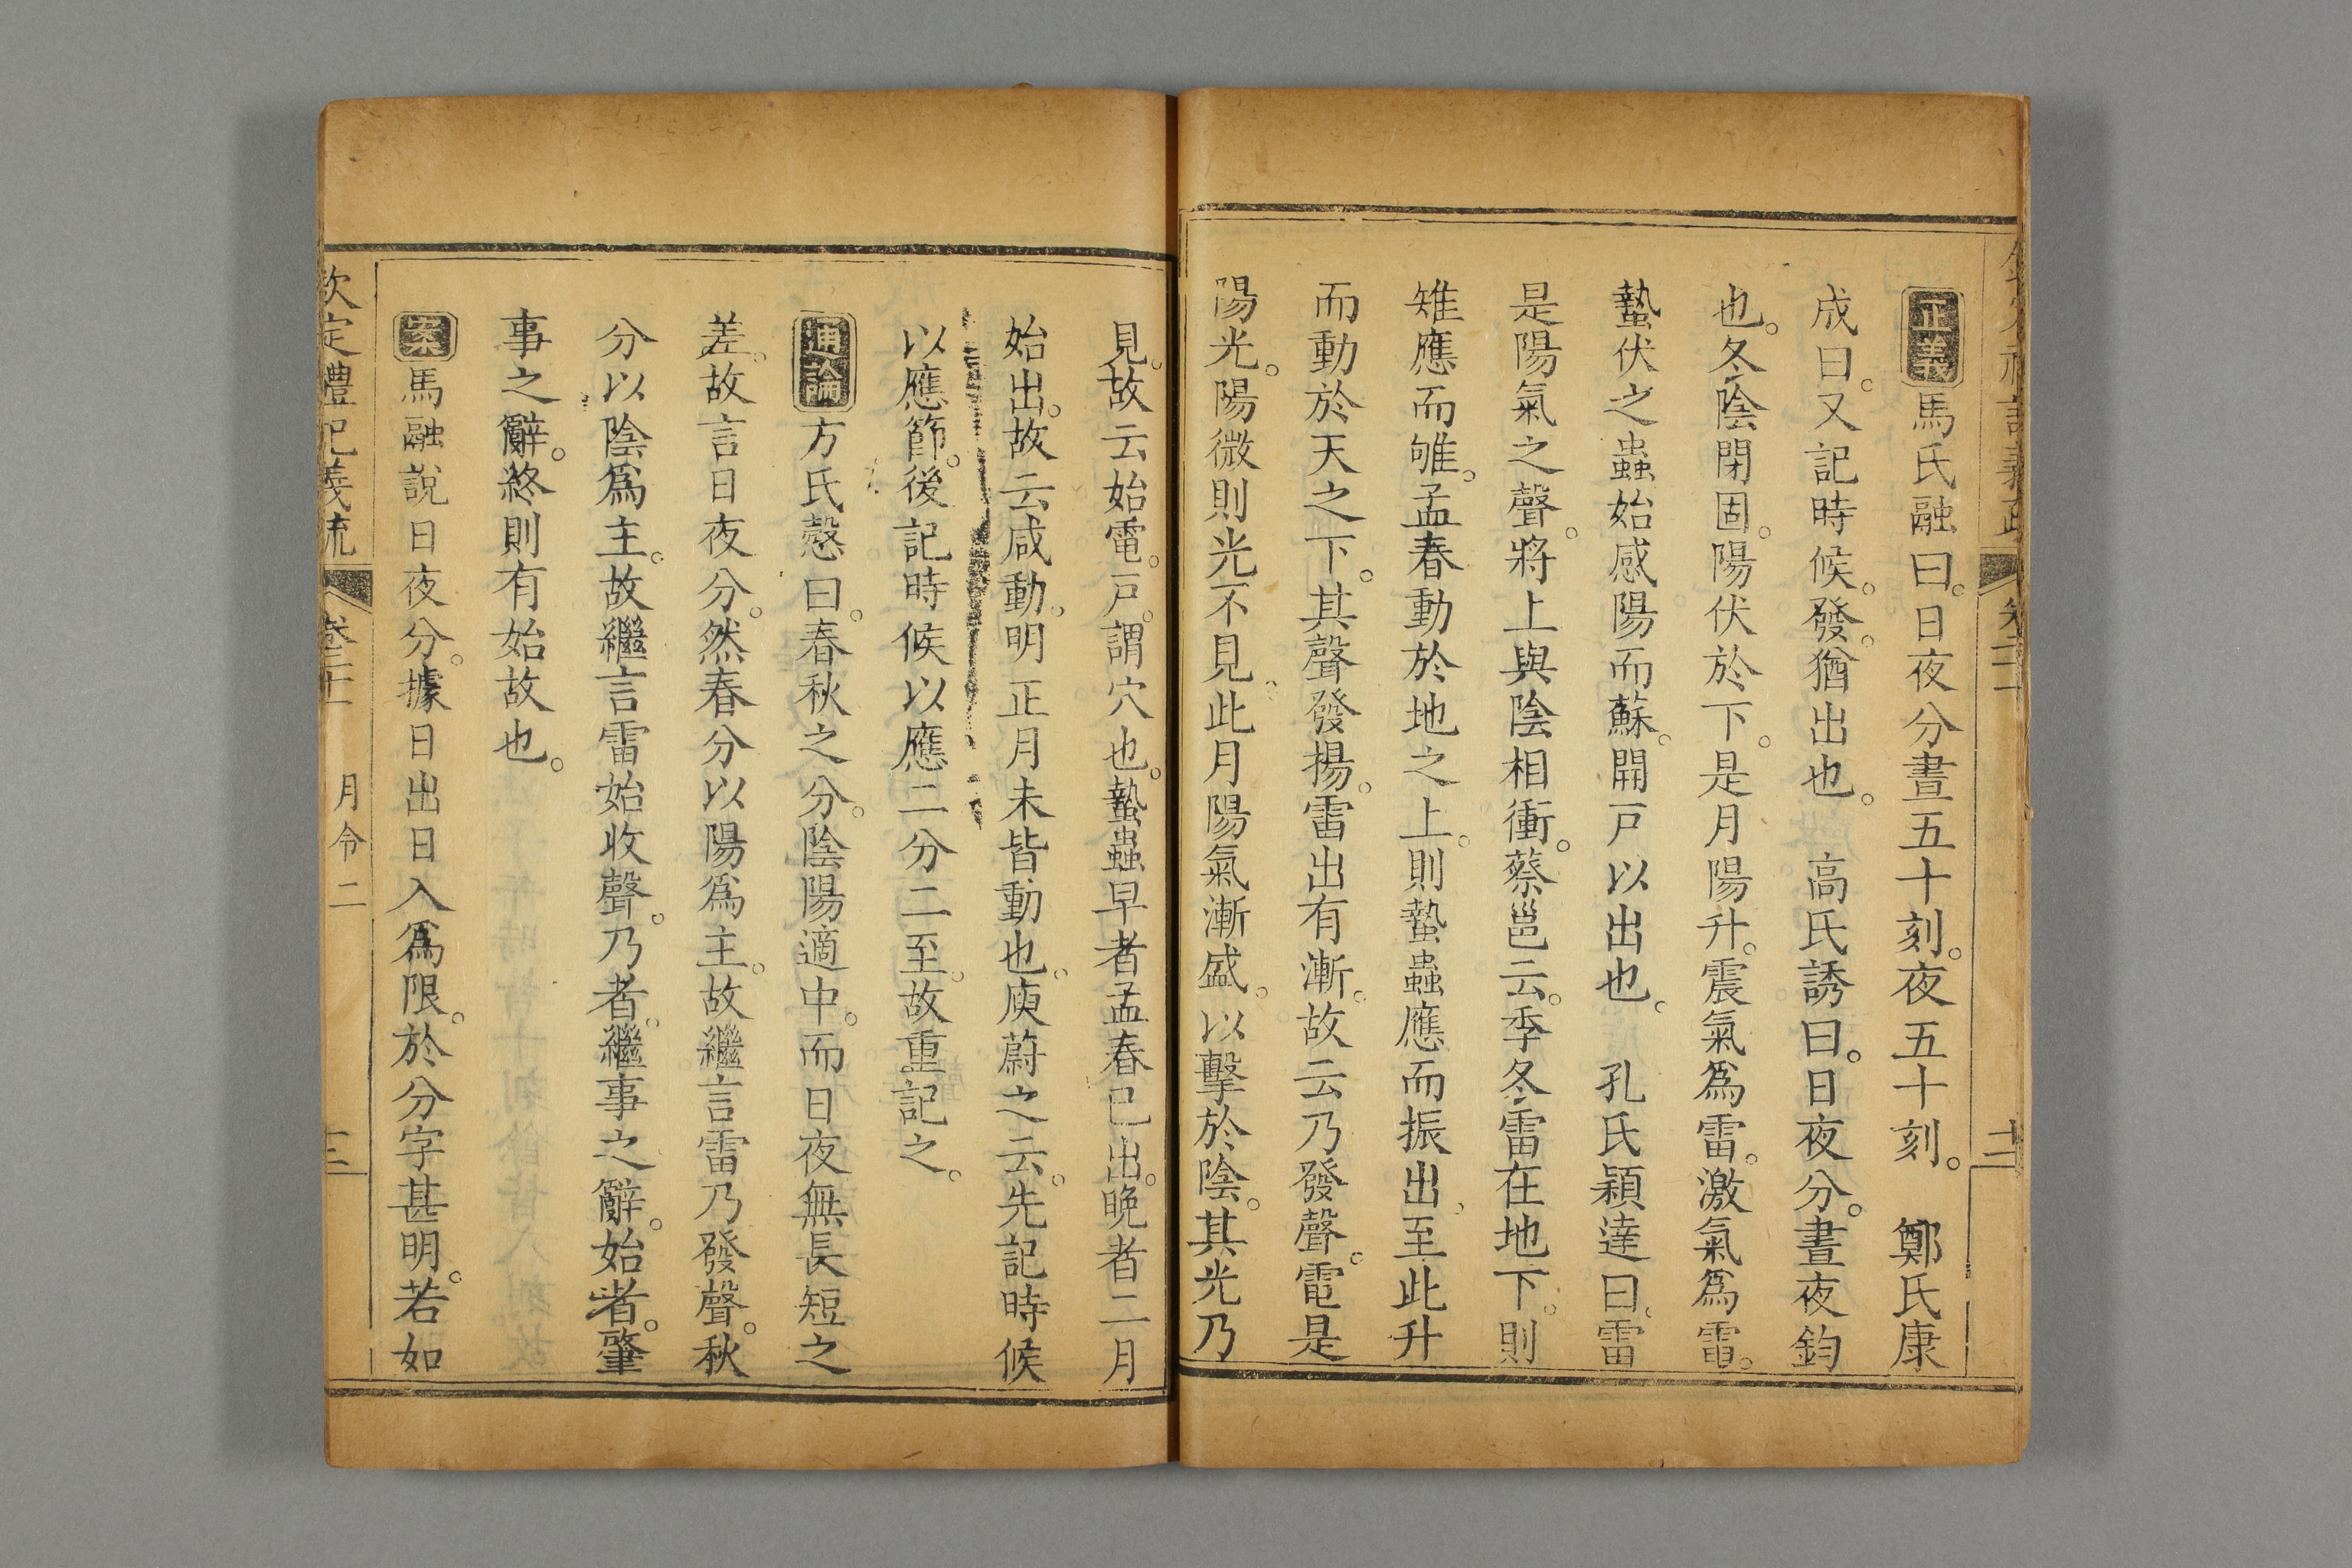 正義馬氏融曰。日夜分晝五十刻。夜五十刻。　鄭氏康
成曰。又記時候。發。猶出也。　高氏誘曰。日夜分。晝夜鈞
也。冬陰閉固。陽伏於下。是月陽升。震氣爲雷。激氣爲電。
蟄伏之蟲始感陽而蘇。開戸以出也。　孔氏穎達曰。雷
是陽氣之聲。將上與陰相衝。蔡邕云。季冬雷在地下。則
雉應而雊。孟春動於地之上。則蟄蟲應而振出。至此升
而動於天之下。其聲發揚。雷出有漸。故云乃發聲。電是
陽光。陽微則光不見。此月陽氣漸盛。以擊於陰。其光乃
見。故云始電。戸。謂穴也。蟄蟲早者孟春已出。晚者二月
始出。故云咸動。明正月未皆動也。庾蔚之云。先記時候
以應節。後記時候以應二分二至。故重記之。
通論方氏慤曰。春秋之分。陰陽適中。而日夜無長短之
差。故言日夜分。然春分以陽爲主。故繼言雷乃發聲。秋
分以陰爲主。故繼言雷始收聲。乃者。繼事之辭。始者。肇
事之辭。終則有始故也。
案馬融說日夜分。據日出日入爲限。於分字甚明。若如
欽定禮記義疏　卷二十一　月令二